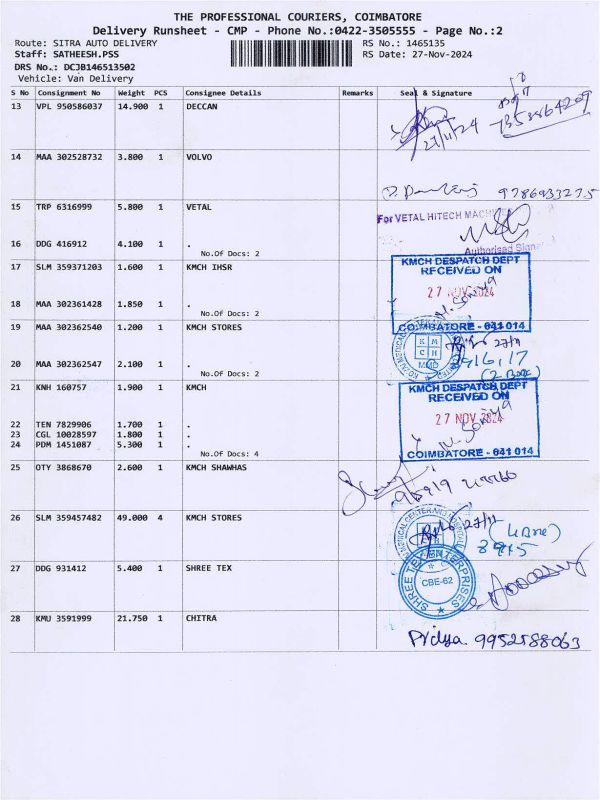 THE PROFESSIONAL COURIERS, COIMBATORE
Delivery Runsheet - CMP - Phone No.:0422-3505555 - Page No.:2
Route: SITRA AUTO DELIVERY RS No.: 1465135
Staff: SATHEESH.PSS RS Date: 27-Nov-2024
DRS No.: DCJB146513502
Vehicle: Van Delivery
S No Consignment No Weight PCS Consignee Details Remarks Seal & Signature
13 VPL 950586037 14.900 1 DECCAN
27/11/24
14 MAA 302528732 3.800 1 VOLVO
9786933275
15 TRP 6316999 5.800 1 VETAL
For VETAL HITECH
16 DDG 416912 4.100 1 .
No.Of Docs: 2
Authorised
17 SLM 359371203 1.600 1 KMCH IHSR
KMCH DESPATCH DEPT
RECEIVED ON
27 NOV 2024
18 MAA 302361428 1.850 1 .
No.Of Docs: 2
COIMBATORE - 641 014
19 MAA 302362540 1.200 1 KMCH STORES
27/11
20 MAA 302362547 2.100 1 .
No.Of Docs: 2
21 KNH 160757 1.900 1 KMCH
KMCH DESPATCH DEPT
RECEIVED ON
27 NOV 2024
22 TEN 7829906 1.700 1 .
23 CGL 10028597 1.800 1 .
24 PDM 1451087 5.300 1 .
No.Of Docs: 4
COIMBATORE - 641 014
25 OTY 3868670 2.600 1 KMCH SHAWHAS
26 SLM 359457482 49.000 4 KMCH STORES
27/11
27 DDG 931412 5.400 1 SHREE TEX
SHREE TEX ENTERPRISES
CBE-62
28 KMU 3591999 21.750 1 CHITRA
Pridya 9952588063